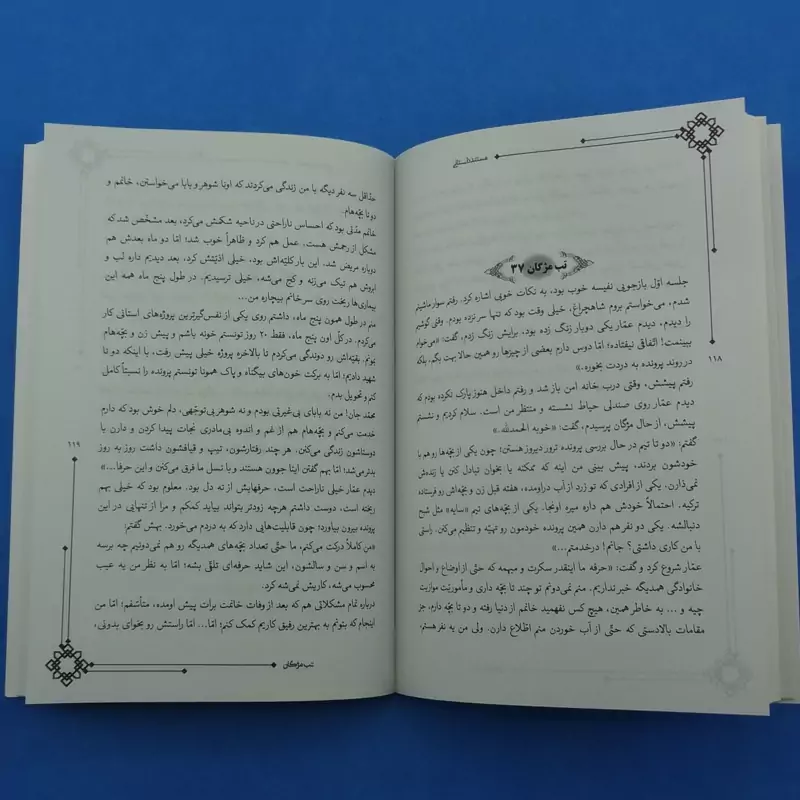 مستند داستانی
تب مژگان ۳۷
جلسه اوّل بازجویی نفیسه خوب بود، به نکات خوبی اشاره کرد. رفتم سوار ماشینم
شدم، می‌خواستم بروم شاهچراغ، خیلی وقت بود که تنها سر نزده بودم. وقتی گوشیم
را دیدم، دیدم عمّار یکی دوبار زنگ زده بود. برایش زنگ زدم، گفت: «می‌خوام
ببینمت! اتّفاقی نیفتاده! امّا دوس دارم بعضی از چیزها رو همین حالا بهت بگم. بلکه
در روند پرونده به دردت بخوره.»
رفتم پیشش، وقتی درب خانه امن باز شد و رفتم داخل هنوز پارک نکرده بودم که
دیدم عمّار روی صندلی حیاط نشسته و منتظر من است. سلام کردیم و نشستم
پیشش، از حال مژگان پرسیدم، گفت: «خوبه الحمدلله.»
گفتم: «دو تا تیم در حال بررسی پرونده ترور دیروز هستن؛ چون یکی از بچّه‌ها رو هم با
خودشون بردند، پیش بینی من اینه که ممکنه یا بخوان تبادل کنن یا زنده‌ش
نمی‌ذارن. یکی از افرادی که تو زرد از آب دراومده، هفته قبل زن و بچّه‌اش رو فرستاده
ترکیه. احتمالاً خودش هم داره میره اونجا. یکی از بچّه‌های تیم «سایه» مثل شبح
دنبالشه. یکی دو نفر هم دارن همین پرونده خودمون رو تهیّه و تنظیم می‌کنن. راستی
با من کاری داشتی؟ جانم! درخدمتم...»
عمّار شروع کرد و گفت: «حرفه ما اینقدر سکرت و مبهمه که حتّی از اوضاع و احوال
خانوادگی همدیگه خبر نداریم. منم نمی‌دونم تو چند تا بچّه داری و مأموریّت موازیت
چیه و ... به خاطر همین، هیچ کس نفهمید خانم از دنیا رفته و دو تا بچّه دارم، جز
مقامات بالادستی که حتّی از آب خوردن منم اطّلاع دارن. ولی من یه نفر هستم،
۱۱۸
حداقل سه نفر دیگه با من زندگی می‌کردند که اونا شوهر و بابا می‌خواستن، خانمم و
دو تا بچّه‌هام.
خانمم مدّتی بود که احساس ناراحتی در ناحیه شکمش می‌کرد، بعد مشخّص شد که
مشکل از رحمش هست. عمل هم کرد و ظاهراً خوب شد؛ امّا دو ماه بعدش هم
دوباره مریض شد. این بار کلیه‌اش بود، خیلی اذیّتش کرد، بعد دیدیم داره لب و
ابروش هم تیک می‌زنه و کج می‌شه، خیلی ترسیدیم. در طول پنج ماه همه این
بیماری‌ها ریخت روی سر خانم بیچاره من...
منم در طول همون پنج ماه، داشتم روی یکی از نفس‌گیرترین پروژه‌های استانی کار
می‌کردم. در کلّ اون پنج ماه، فقط ۲۰ روز تونستم خونه باشم و پیش زن و بچّه‌هام
بودم. بقیّه‌اش رو دوندگی می‌کردم تا بالاخره پروژه خیلی پیش رفت، با اینکه دو تا
شهید دادیم؛ امّا به برکت خون‌های بیگناه و پاک همونا تونستم پرونده را نسبتاً کامل
کنم و تحویل بدم.
محمّد جان! من نه بابای بی‌غیرتی بودم و نه شوهر بی‌توجّهی. دلم خوش بود که دارم
خدمت می‌کنم و بچّه‌هام هم از غم و اندوه بی‌مادری نجات پیدا کردن و دارن با
دوستاشون زندگی می‌کنن. هر چند رفتارشون، تیپ و قیافشون داشت روز به روز
بدتر می‌شد؛ امّا بهم گفتن اینا جوون هستند و با نسل ما فرق می‌کنن و این حرفا...»
دیدم عمّار خیلی ناراحت است، حرفهایش از ته دل بود. معلوم بود که خیلی بهم
ریخته است، دوست داشتم هرچه زودتر بتواند بیاید کمکم و مرا از تنهایی در این
پرونده بیرون بیاورد؛ چون قابلیت‌هایی دارد که به دردم می‌خورد. بهش گفتم:
«من کاملاً درکت می‌کنم، ما حتّی تعداد بچّه‌های همدیگه رو هم نمی‌دونیم چه برسه
به اسم و سن و سالشون، این شاید حرفه‌ای تلقّی بشه؛ امّا به نظر من یه عیب
محسوب می‌شه، کاریش نمی‌شه کرد.
درباره تمام مشکلاتی هم که بعد از وفات خانمت برات پیش اومده، متأسّفم؛ امّا من
اینجام که بتونم به بهترین رفیق کاریم کمک کنم؛ امّا... امّا راستش رو بخوای بدونی،
۱۱۹
تب مژگان